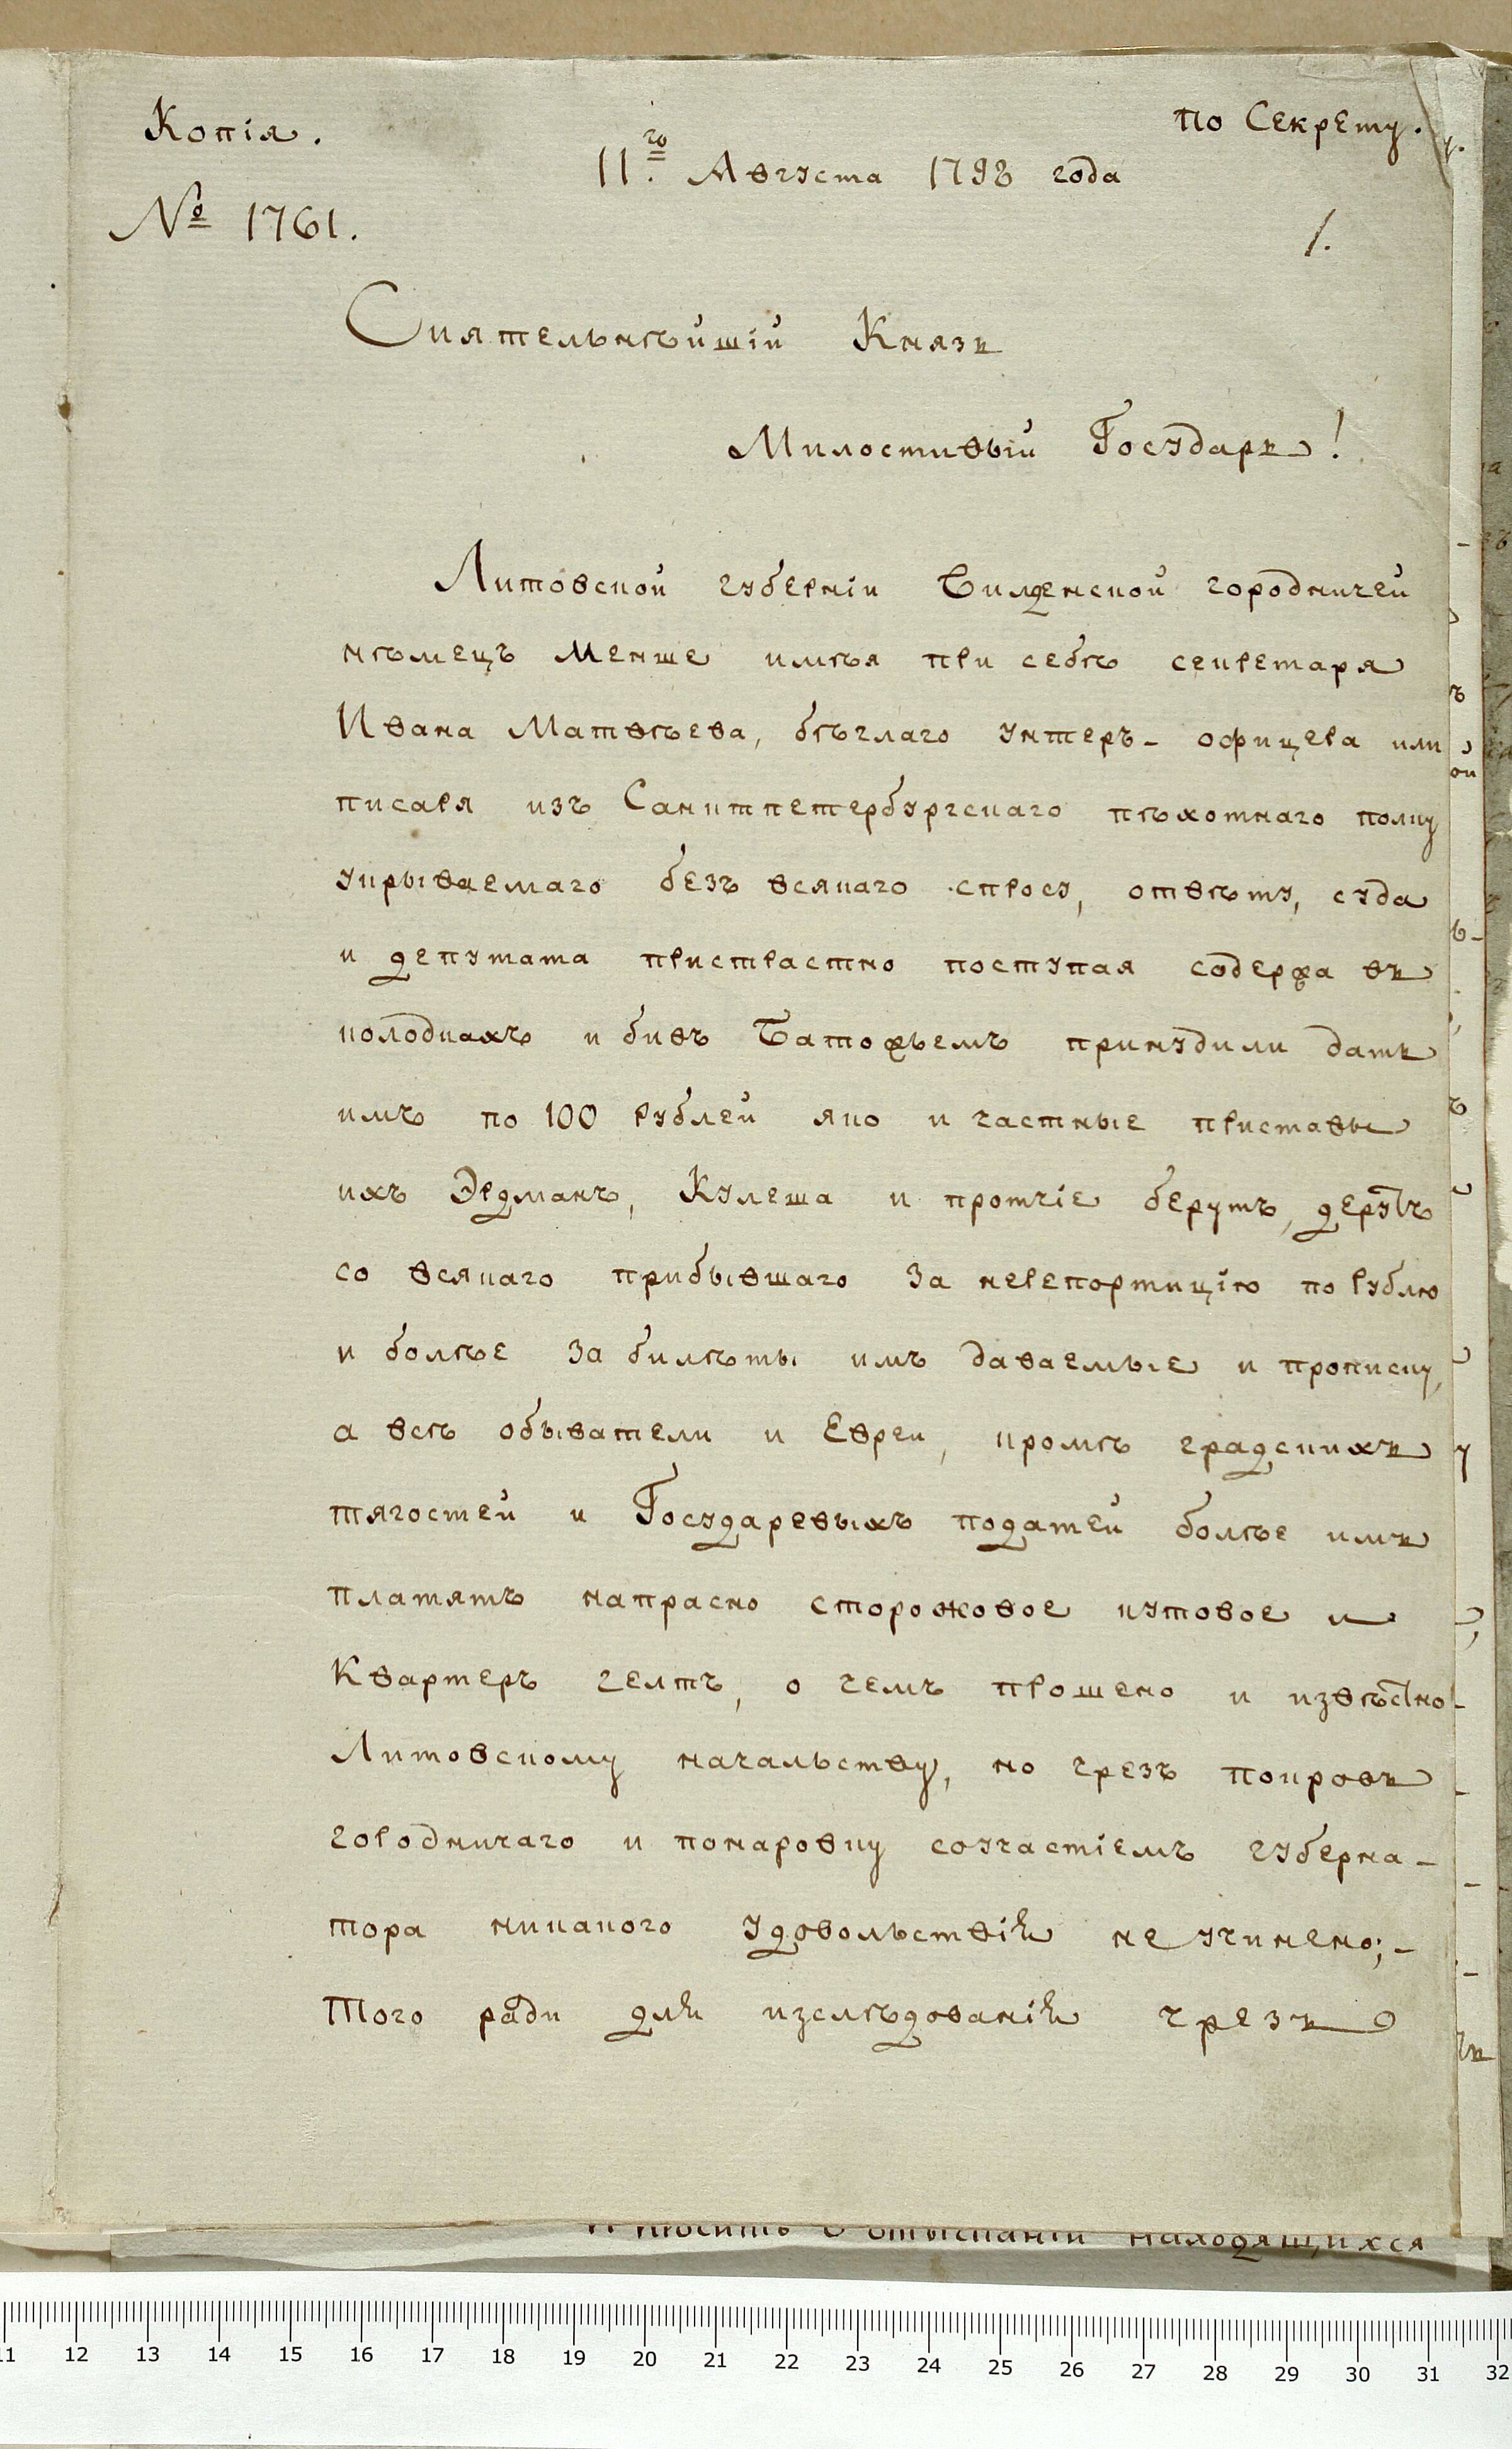 Копія.
по Секрету.
11.го Августа 1798 года
№ 1761.
1.
Сиятельнѣйшій Князь
Милостивый Государь!
Литовской губерніи Виленской городничей
нѣмецъ Менше имѣя при себѣ секретаря
Ивана Матвѣева, бѣглаго унтеръ- офицера или
писаря изъ Санктпетербургскаго пѣхотнаго полку
укрываемаго безъ всякаго спросу, отвѣту, суда
и депутата пристрастно поступая содержа въ
колодкахъ и бивъ Батожьемъ принудили дать
имъ по 100 рублей яко и частные приставы
ихъ Эрдманъ, Кулеша и протчіе берутъ, дерутъ
со всякаго прибывшаго за нерепортицію по рублю
и болѣе за билѣты имъ даваемые и прописку,
а всѣ обыватели и Евреи, кромѣ градскихъ
тягостей и Государевыхъ податей болѣе имъ
платятъ напрасно сторожовое кутовое и
Квартеръ гелтъ, о чемъ прошено и извѣстно
Литовскому начальству, но чрезъ покровъ
городничаго и понаровку соучастіемъ губерна-
тора никакого удовольствія не учинено;-
Того ради для изслѣдованія чрезъ
и просить о отысканіи находящихся